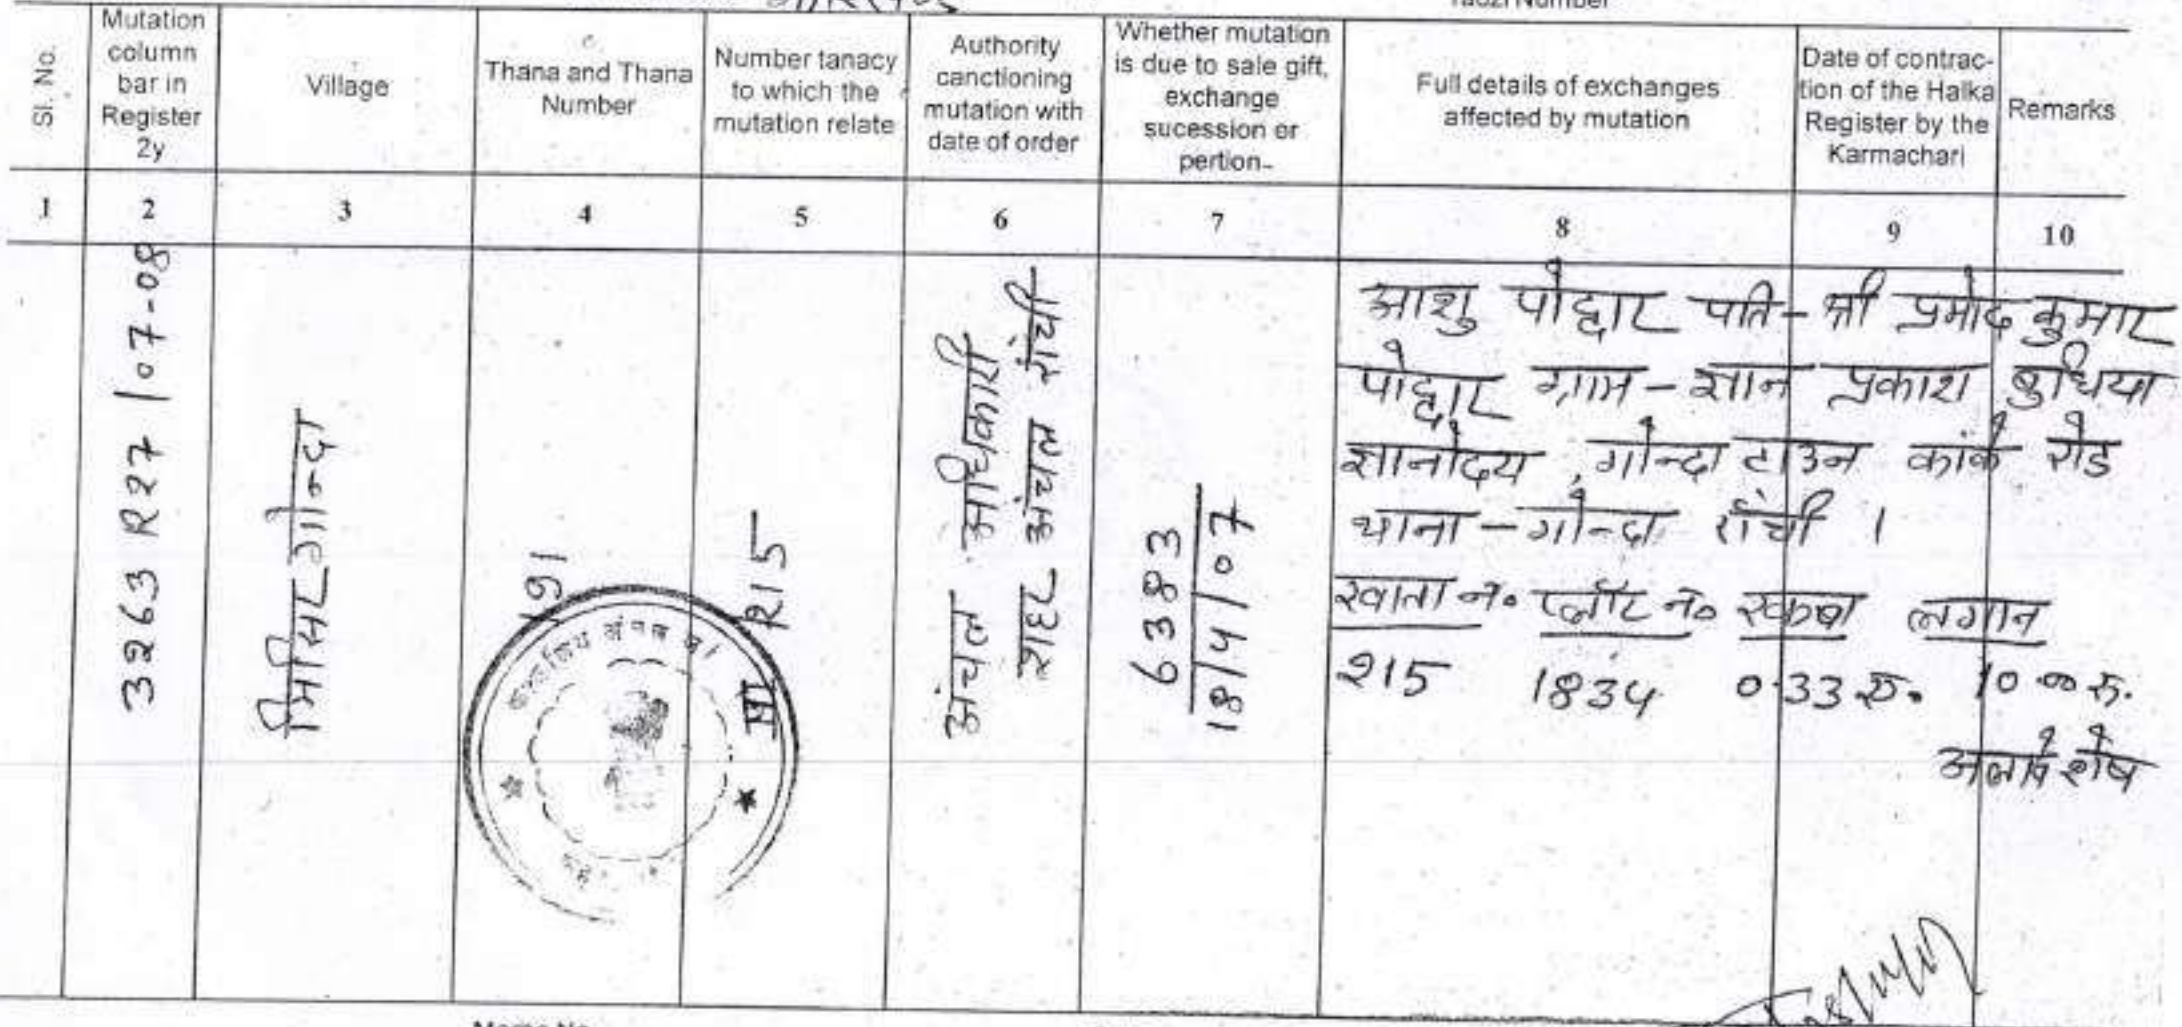 Sl. No.
Mutation
column
bar in
Register
2y
Village
Thana and Thana
Number
Number tanacy
to which the
mutation relate
Authority
canctioning
mutation with
date of order
Whether mutation
is due to sale gift,
exchange
sucession or
pertion-
Full details of exchanges
affected by mutation
Date of contrac-
tion of the Halka
Register by the
Karmachari
Remarks
1 2 3 4 5 6 7 8 9 10
3263 R27 / 07-08
मिसिरगोन्दा
191
215
अंचल अधिकारी
शहर अंचल राँची
6383
18/4/07
आशु पोद्दार पति - श्री प्रमोद कुमार
पोद्दार ग्राम - ज्ञान प्रकाश बुधिया
ज्ञानोदय, गोन्दा टाउन कांके रोड
थाना - गोन्दा राँची ।
खाता न० प्लॉट न० रकबा लगान
215 1834 0.33 ए. 10.00 रु.
अलावे शेष